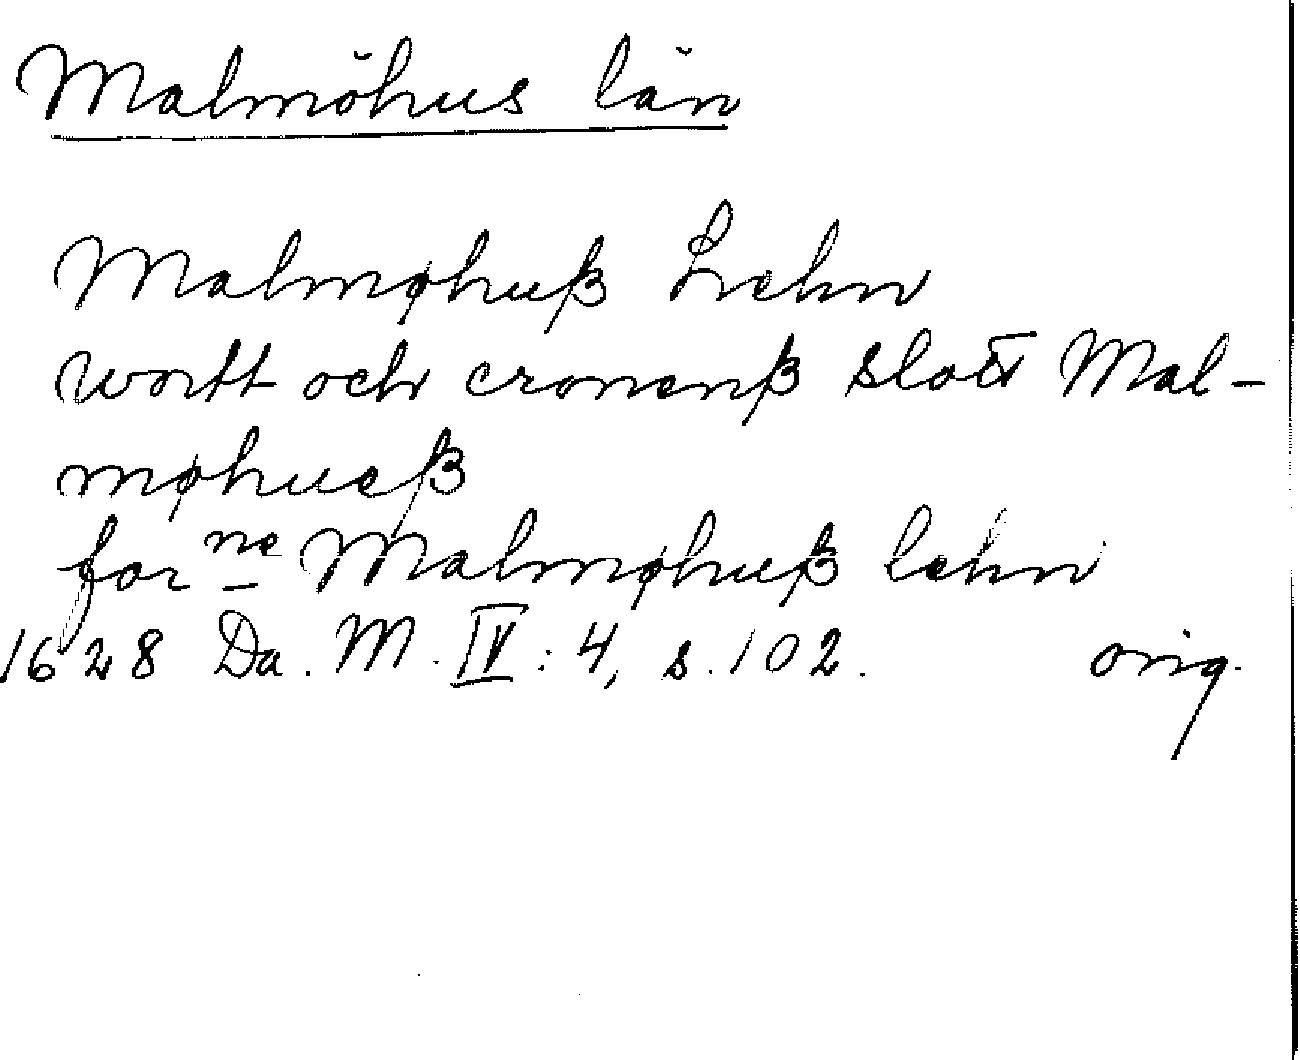 Malmöhus län
Malmøhuß Lehn
wortt och cronenß slott Mal-
møhueß
for ne Malmøhuß lehn
1628 Da. M. IV: 4, s. 102. orig.